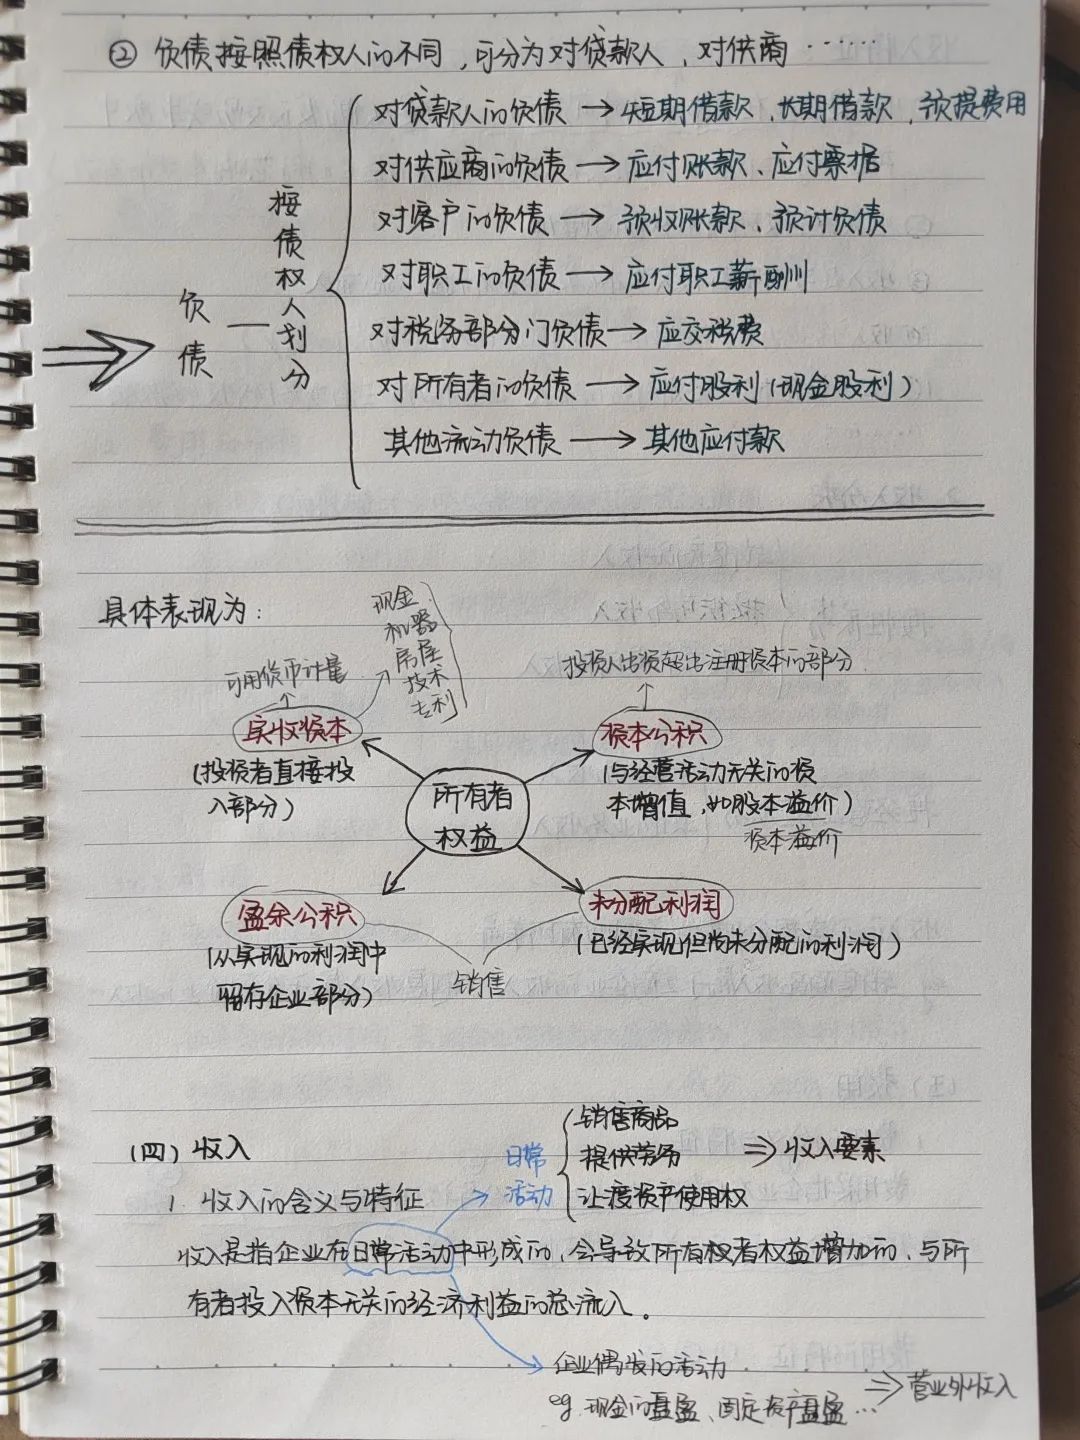 ② 负债按照债权人的不同，可分为对贷款人，对供商……
负债 — 按债权人划分
对贷款人的负债 → 短期借款、长期借款、预提费用
对供应商的负债 → 应付账款、应付票据
对客户的负债 → 预收账款、预计负债
对职工的负债 → 应付职工薪酬
对税务部分门负债 → 应交税费
对所有者的负债 → 应付股利（现金股利）
其他流动负债 → 其他应付款
具体表现为：
现金
机器
房屋
技术
专利
可用货币计量
实收资本
（投资者直接投
入部分）
投资人出资超出注册资本的部分
资本公积
（与经营活动无关的资
本增值，如股本溢价）
资本溢价
所有者
权益
盈余公积
（从实现的利润中
留存企业部分）
未分配利润
（已经实现但尚未分配的利润）
销售
（四）收入
日常
活动
销售商品
提供劳务
让渡资产使用权
⇒ 收入要素
1. 收入的含义与特征
收入是指企业在日常活动中形成的，会导致所有权者权益增加的、与所
有者投入资本无关的经济利益的总流入。
企业偶发的活动
eg. 现金的盘盈、固定资产盘盈… ⇒ 营业外收入